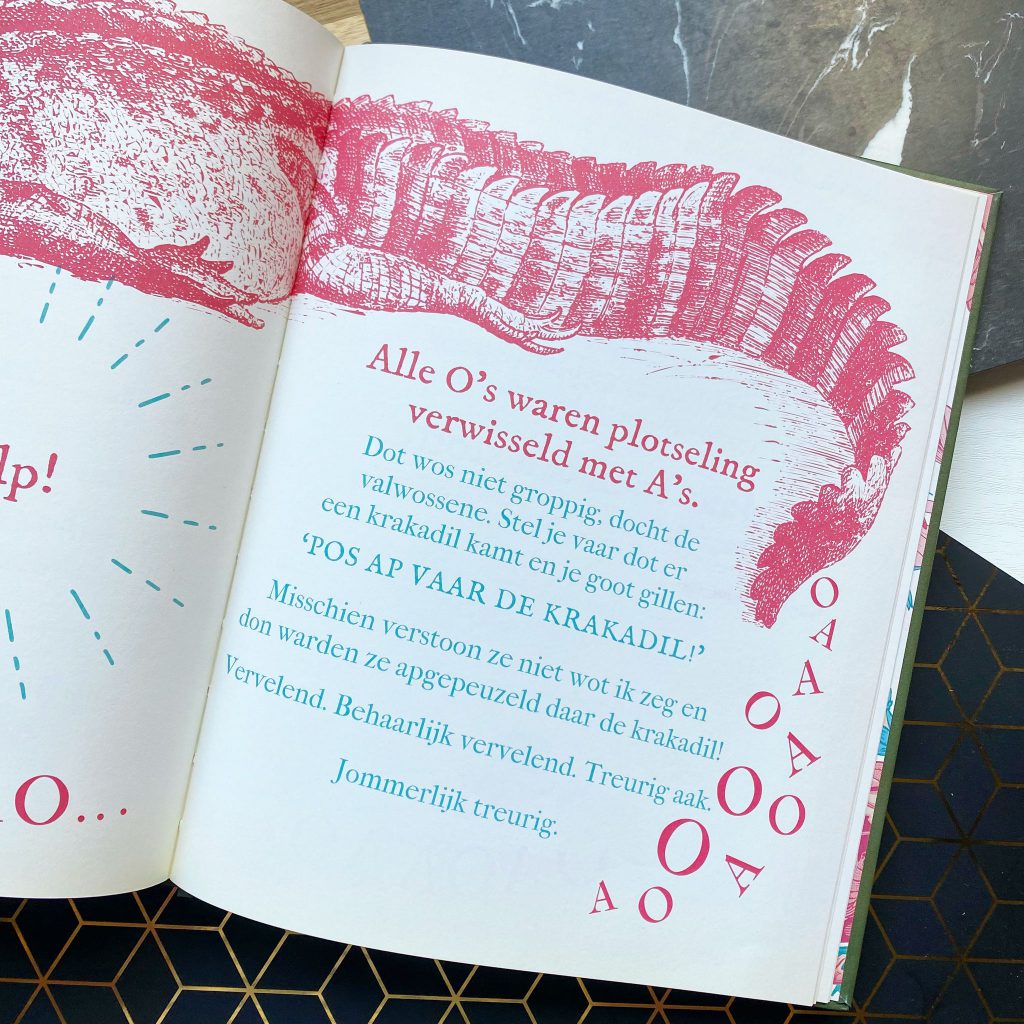 lp!
O...
Alle O's waren plotseling
verwisseld met A's.
Dot wos niet groppig, docht de
valwossene. Stel je vaar dot er
een krakadil kamt en je goot gillen:
'POS AP VAAR DE KRAKADIL!'
Misschien verstoon ze niet wot ik zeg en
don warden ze apgepeuzeld daar de krakadil!
Vervelend. Behaarlijk vervelend. Treurig aak.
Jommerlijk treurig.
O
A
A
O
A
O
O
O
A
O
A